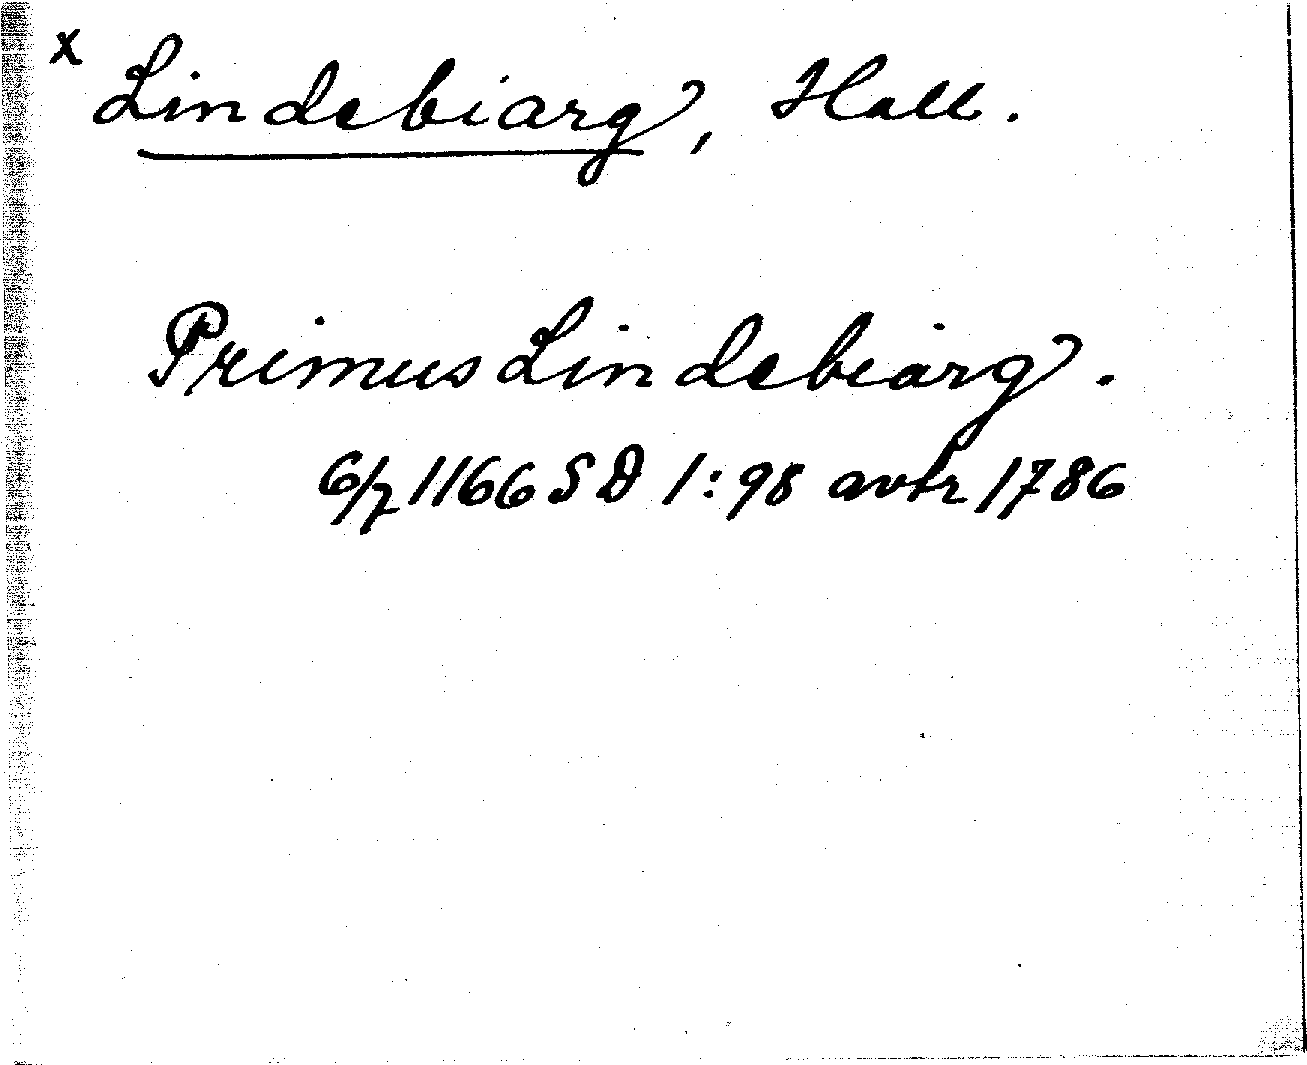 x Lindebiarg, Hall.
Primus Lindebiarg.
6/7 1166 SD 1:98 avtr 1786